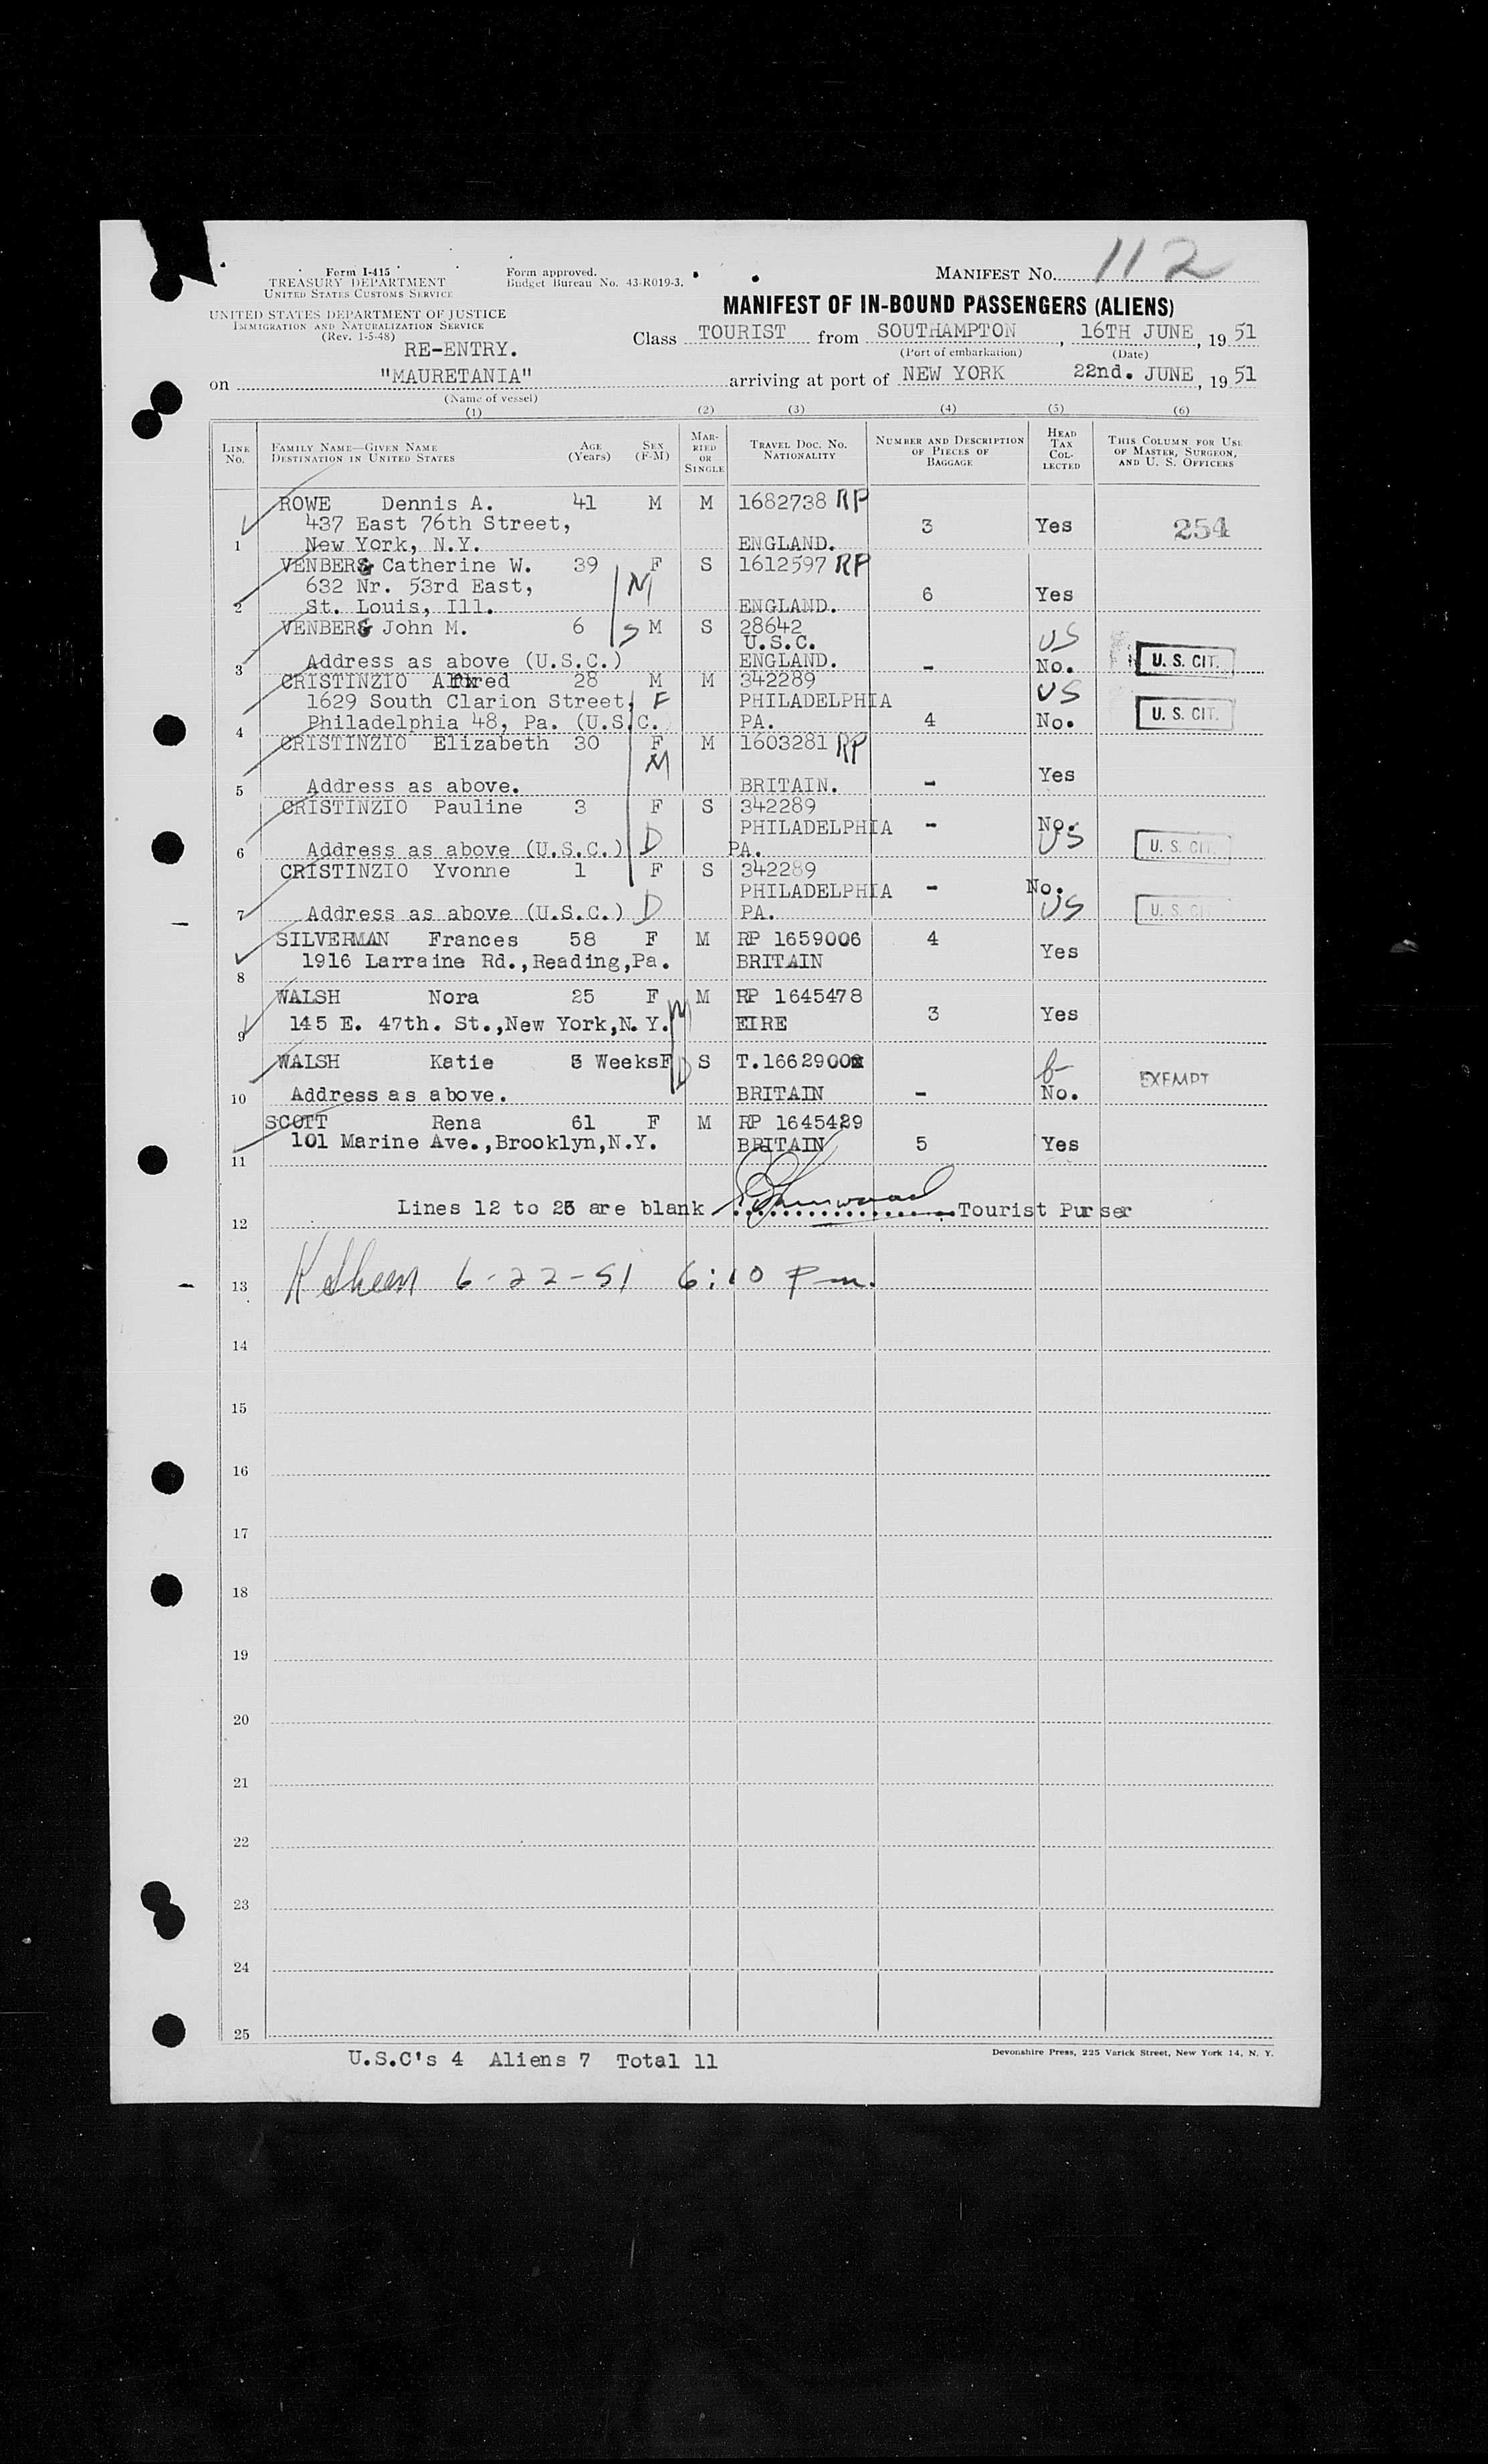 112
Form I-415
TREASURY DEPARTMENT
UNITED STATES CUSTOMS SERVICE
Form approved.
Budget Bureau No. 43-R019-3.
MANIFEST NO.
UNITED STATES DEPARTMENT OF JUSTICE
IMMIGRATION AND NATURALIZATION SERVICE
(Rev. 1-5-48)
MANIFEST OF IN-BOUND PASSENGERS (ALIENS)
RE-ENTRY.
Class TOURIST from SOUTHAMPTON, 16TH JUNE, 19 51
(Port of embarkation) (Date)
on "MAURETANIA" arriving at port of NEW YORK 22nd. JUNE, 19 51
(Name of vessel)
(1) (2) (3) (4) (5) (6)
LINE NO. FAMILY NAME—GIVEN NAME DESTINATION IN UNITED STATES AGE (Years) SEX (F-M) MARRIED OR SINGLE TRAVEL DOC. NO. NATIONALITY NUMBER AND DESCRIPTION OF PIECES OF BAGGAGE HEAD TAX COLLECTED THIS COLUMN FOR USE OF MASTER, SURGEON, AND U. S. OFFICERS
ROWE Dennis A. 41 M M 1682738 RP
437 East 76th Street, 3 Yes 254
1 New York, N.Y. ENGLAND.
VENBERG Catherine W. 39 F S 1612597 RP
632 Nr. 53rd East, M 6 Yes
2 St. Louis, Ill. ENGLAND.
VENBERG John M. 6 S M S 28642 US
U.S.C.
3 Address as above (U.S.C.) ENGLAND. - No. U. S. CIT.
CRISTINZIO Alfred 28 M M 342289 US
1629 South Clarion Street, F PHILADELPHIA
4 Philadelphia 48, Pa. (U.S.C. PA. 4 No. U. S. CIT.
CRISTINZIO Elizabeth 30 F M 1603281 RP
M Yes
5 Address as above. BRITAIN. -
CRISTINZIO Pauline 3 F S 342289
PHILADELPHIA - No.
6 Address as above (U.S.C.) D PA. US U. S. CIT.
CRISTINZIO Yvonne 1 F S 342289
PHILADELPHIA - No.
7 Address as above (U.S.C.) D PA. US U. S. CIT.
SILVERMAN Frances 58 F M RP 1659006 4
1916 Larraine Rd.,Reading,Pa. BRITAIN Yes
8
WALSH Nora 25 F M RP 1645478
145 E. 47th. St.,New York,N.Y. M EIRE 3 Yes
9
WALSH Katie Weeks F D S T.1662900
EXEMPT
10 Address as above. BRITAIN - No.
SCOTT Rena 61 F M RP 1645429
101 Marine Ave.,Brooklyn,N.Y. BRITAIN 5 Yes
11
Lines 12 to 25 are blank Tourist Purser
12
6-22-51 6:10 Pm.
13
14
15
16
17
18
19
20
21
22
23
24
25
U.S.C's 4 Aliens 7 Total 11
Devonshire Press, 225 Varick Street, New York 14, N. Y.